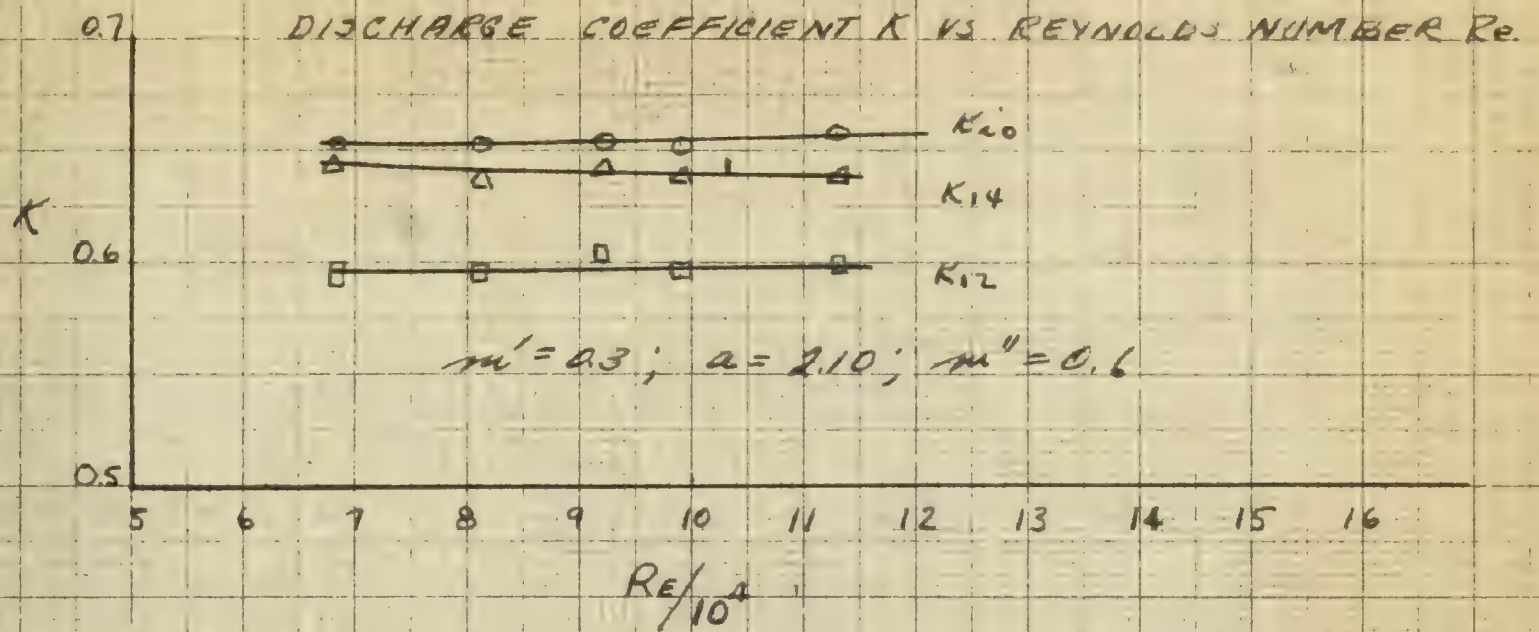 DISCHARGE COEFFICIENT K VS REYNOLDS NUMBER Re.
0.7
K10
K14
K
0.6
K12
m' = 0.3; a = 2.10; m" = 0.6
0.5
5 6 7 8 9 10 11 12 13 14 15 16
RE/10^4